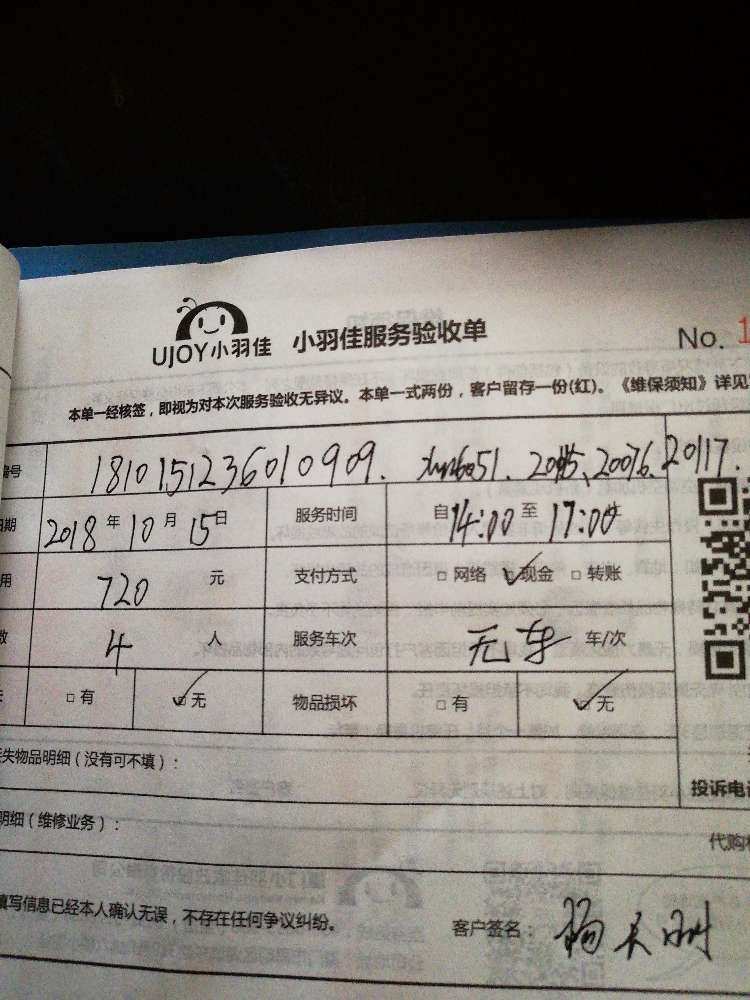 UJOY小羽佳 小羽佳服务验收单 No. 1
本单一经核签，即视为对本次服务验收无异议。本单一式两份，客户留存一份(红)。《维保须知》详见
编号 1810151236010909. 20117.
日期 2018年10月15日 服务时间 自14:00至17:00
用 720 元 支付方式 □网络 ☑现金 □转账
数 4 人 服务车次 无车 车/次
□有 ☑无 物品损坏 □有 ☑无
失物品明细（没有可不填）：
投诉电
明细（维修业务）：
代购
填写信息已经本人确认无误，不存在任何争议纠纷。 客户签名：